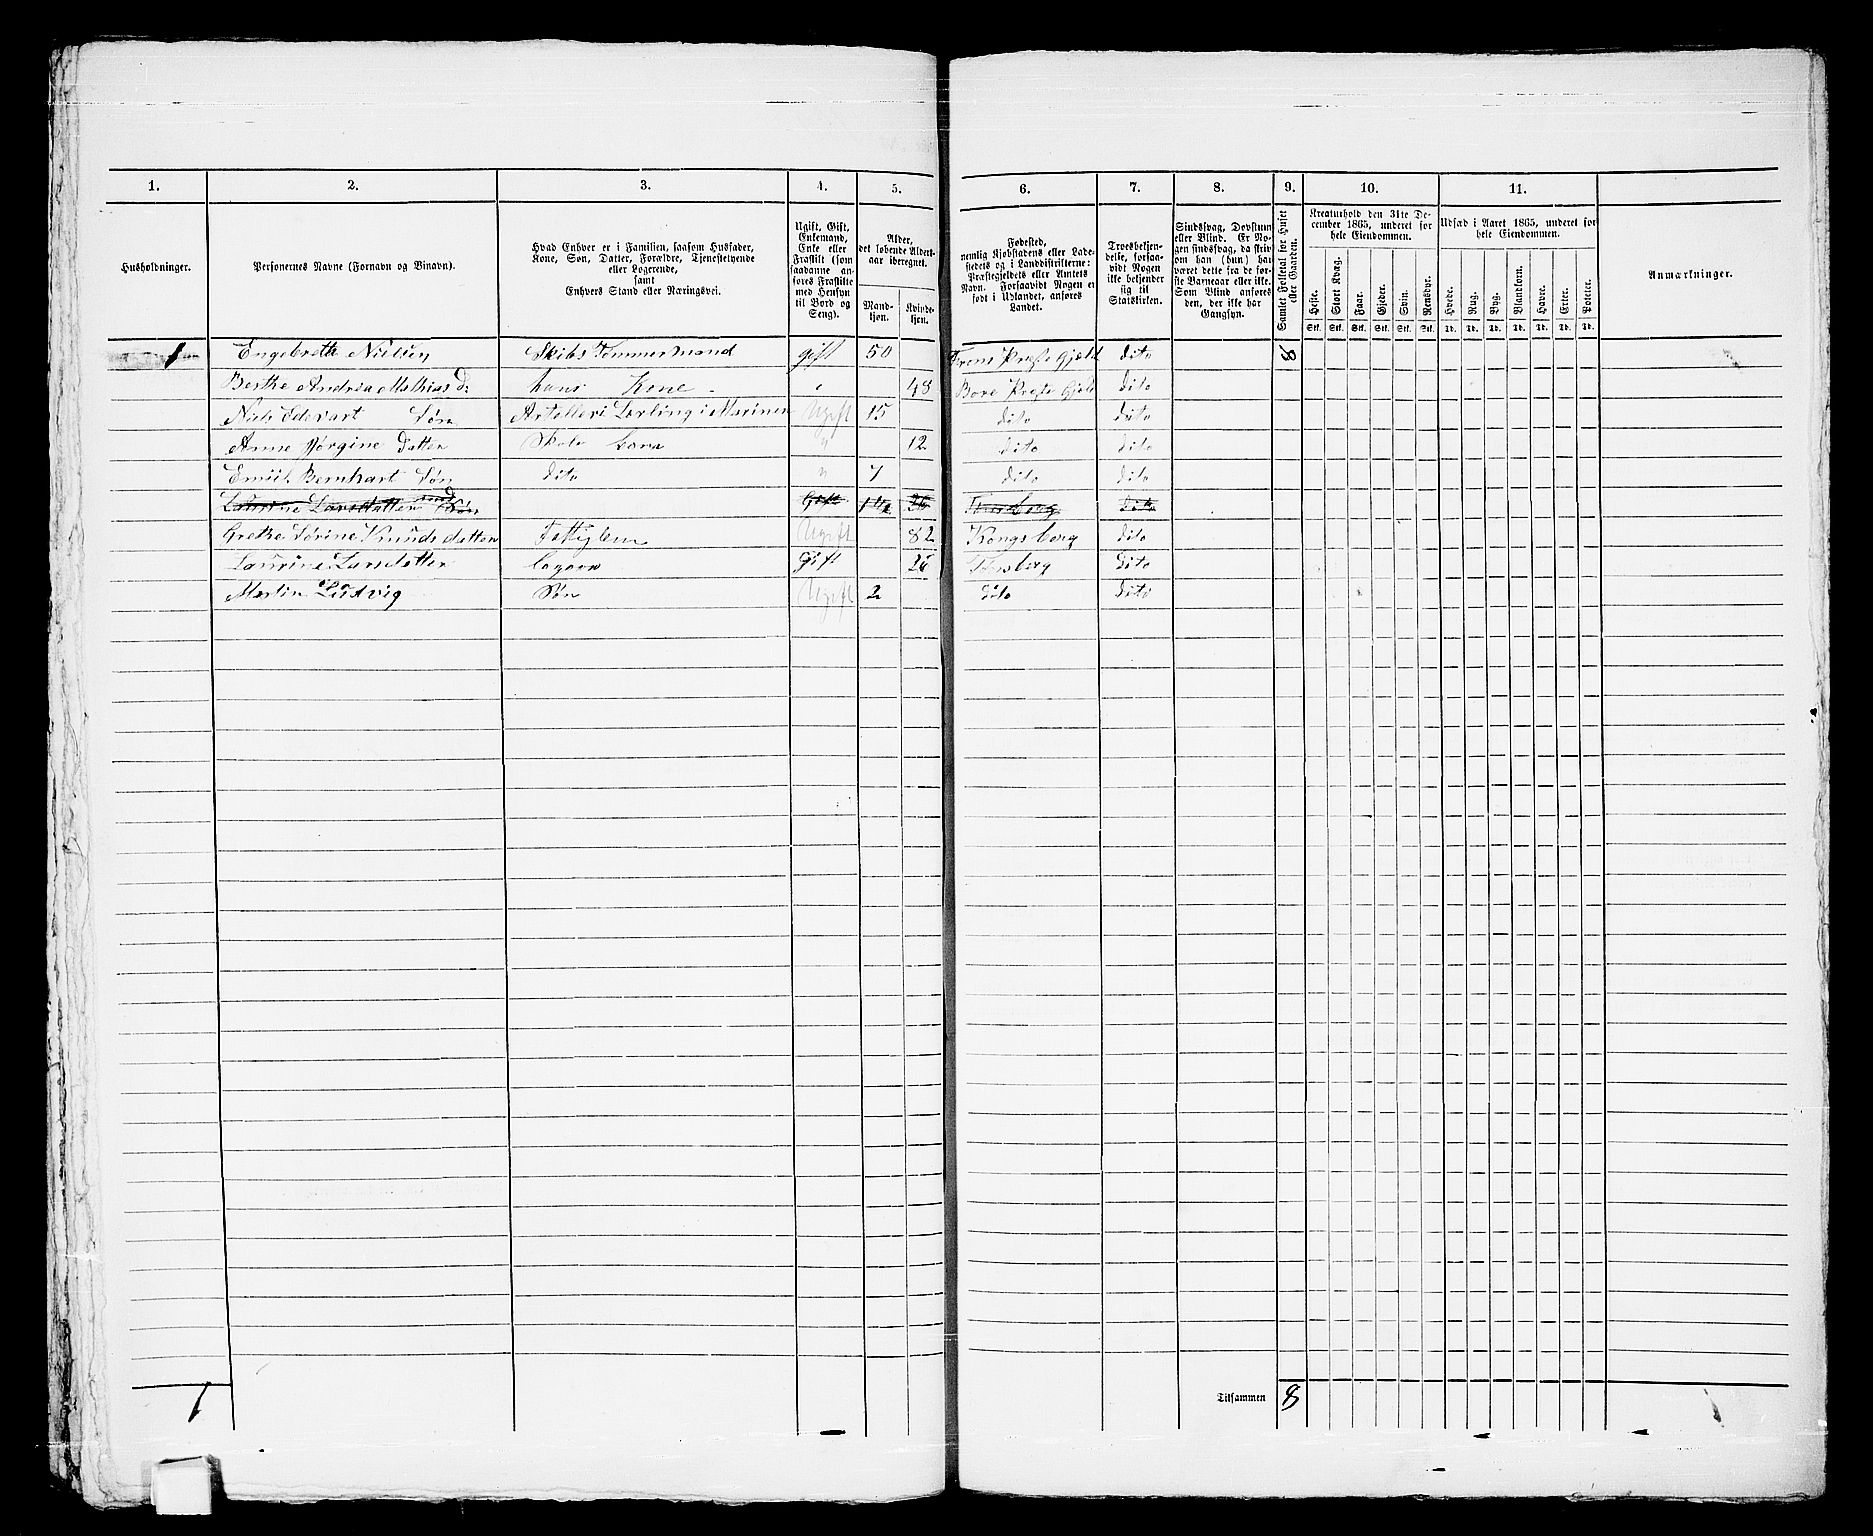 1. 2. 3. 4. 5. 6. 7. 8. 9. 10. 11.
Husholdninger.
Personernes Navne (Fornavn og Binavn).
Hvad Enhver er i Familien, saasom Husfader,
Kone, Søn, Datter, Forældre, Tjenestetyende
eller Logerende,
samt
Enhvers Stand eller Næringsvei.
Ugift, Gift,
Enkemand,
Enke eller
Fraskilt (som
saadanne an-
føres Fraskilte
med Hensyn
til Bord og
Seng).
Alder,
det løbende Alders-
aar iberegnet.
Mand-
kjøn.
Kvinde-
kjøn.
Fødested,
nemlig Kjøbstadens eller Lade-
stedets og i Landdistrikterne:
Præstegjeldets eller Amtets
Navn. Forsaavidt Nogen er
født i Udlandet, anføres
Landet.
Troesbekjen-
delse, forsaa-
vidt Nogen
ikke bekjender
sig til
Statskirken.
Sindssvag, Døvstum
eller Blind. Er No-
gen sindssvag, da skriv
om han (hun) har
været dette fra de før-
ste Barneaar eller ikke.
Som Blind anføres
den, der ikke har
Gangsyn.
Samlet Folketal for Huset
eller Gaarden.
Kreaturhold den 31te De-
cember 1865, underet for
hele Eiendommen.
Heste. Stort Kvæg. Faar. Gjeder. Svin. Rensdyr.
Stk. Stk. Stk. Stk. Stk. Stk.
Udsæd i Aaret 1865, underet for
hele Eiendommen.
Hvede. Rug. Byg. Blandkorn. Havre. Erter. Poteter.
Td. Td. Td. Td. Td. Td. Td.
Anmærkninger.
1 Engebreth Nielsen Skibs Tømmermand gift 50 Præste Gjeld dito 8
Berthe Andrea Mathias D: hans Kone " 48 Borre Præste Gjeld dito
Niels Edevart Søn Artelleri Lærling i Marinen Ugift 15 dito dito
Anne Jørgine Datter Skole " 12 dito dito
Emiil Bernhart Søn dito " 7 dito dito
Laurine Larsdatter med Søn Gift 1 1/2 26 Tønsberg dito
Grethe Sørine Knudsdatter Fattiglem Ugift 82 Kongsberg dito
Laurine Larsdatter Logerer Gift 26 Tønsberg dito
Martin Ludvig Søn Ugift 2 dito dito
1 Tilsammen 8